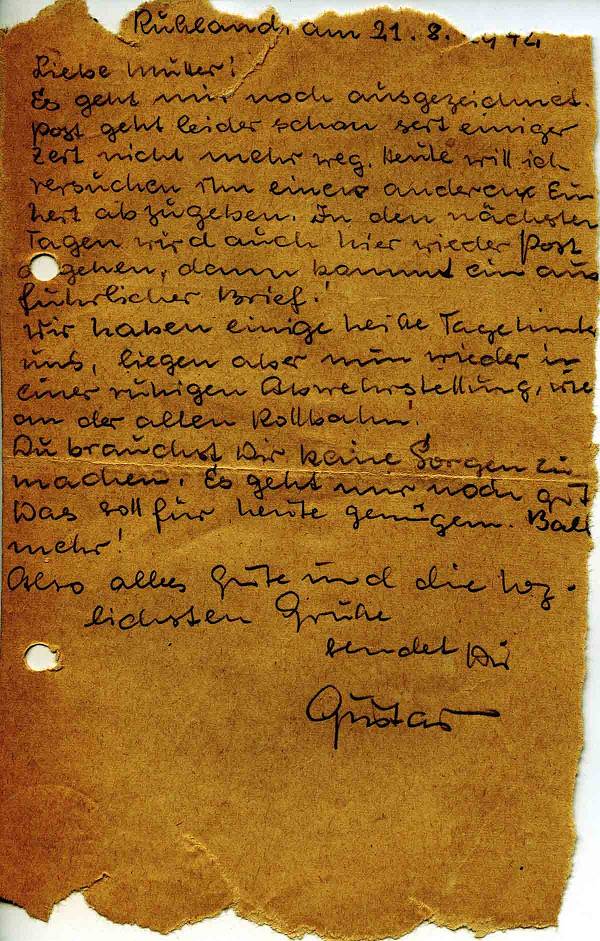 Rußland, am 21. 8. 1942
Liebe Mutter!
Es geht mir noch ausgezeichnet.
Post geht leider schon seit einiger
Zeit nicht mehr weg. Heute will ich
versuchen ihn einer anderen Ein
heit abzugeben. In den nächsten
Tagen wird auch hier wieder Post
abgehen, dann kommt ein aus
führlicher Brief!
Wir haben einige heiße Tage hinter
uns, liegen aber nun wieder in
einer ruhigen Abwehrstellung, wie
an der alten Rollbahn!
Du brauchst Dir keine Sorgen zu
machen. Es geht mir noch gut
Das soll für heute genügen. Bald
mehr!
Also alles Gute und die herz-
lichsten Grüße
sendet Dir
Gustav